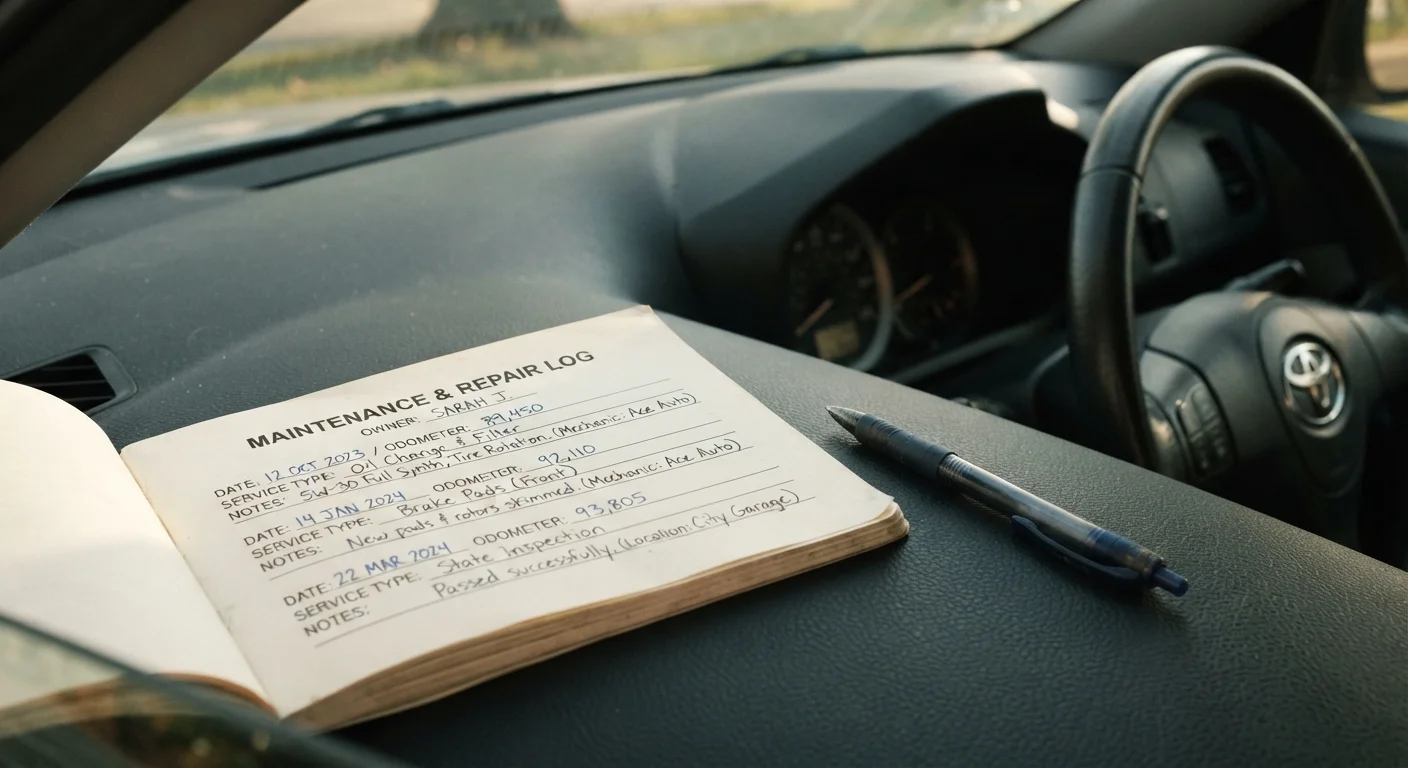 MAINTENANCE & REPAIR LOG
OWNER: SARAH J.
DATE: 12 OCT 2023 / ODOMETER: 89,450
SERVICE TYPE: Oil Change & Filter
NOTES: 5W-30 Full Synth, Tire Rotation. (Mechanic: Ace Auto)
DATE: 14 JAN 2024 ODOMETER: 92,110
SERVICE TYPE: Brake Pads (Front)
NOTES: New pads & rotors skimmed. (Mechanic: Ace Auto)
DATE: 22 MAR 2024 ODOMETER: 93,805
SERVICE TYPE: State Inspection
NOTES: Passed successfully. (Location: City Garage)